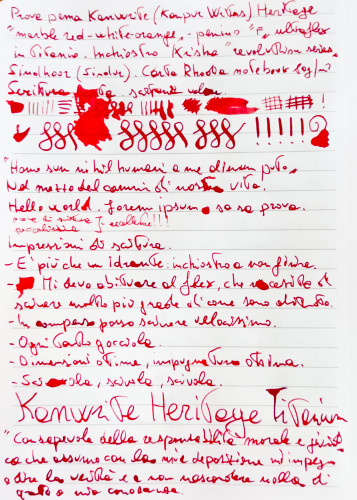 Prova penna Kanwrite (Kanpur Writers) Heritage
"marble red-white-orange", pennino "F" ultraflex
in titanio. Inchiostro "Krishna" revolution series,
Sindhoor (Sindur). Carta Rhodia notebook 90g/m²
Scrittura
"Homo sum nihil humani a me alienum puto"
Nel mezzo del cammin di nostra vita.
Hello world. Lorem ipsum. sa sa prova.
prova di scrittura
eccellente!!!
Impressioni di scrittura.
- E' più che un idrante: inchiostro a non finire.
- Mi devo abituare al flex, che necessita di
scrivere molto più grande di come sono abituato.
- In compenso posso scrivere velocissimo.
- Ogni tanto gocciola.
- Dimensioni ottime, impugnatura ottima.
- Scivola, scivola, scivola.
Kanwrite Heritage Titanium
"Consapevole della responsabilità morale e giuridi
ca che assumo con la mia deposizione mi impegno
a dire la verità e a non nascondere nulla di
quanto a mia conoscenza.